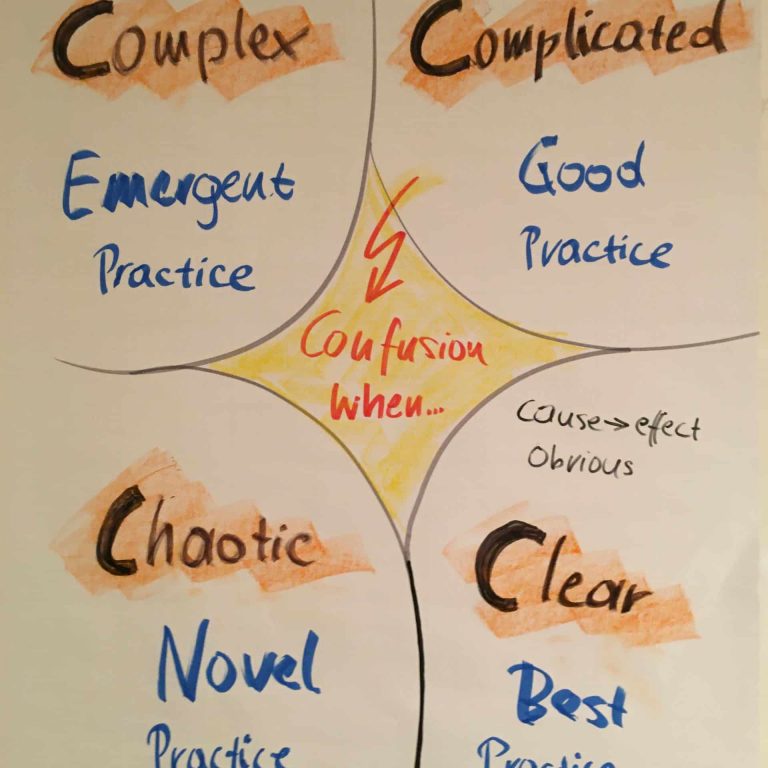 Complex
Emergent
Practice
Complicated
Good
Practice
Confusion
when...
cause→effect
obvious
Chaotic
Novel
Practice
Clear
Best
Practice